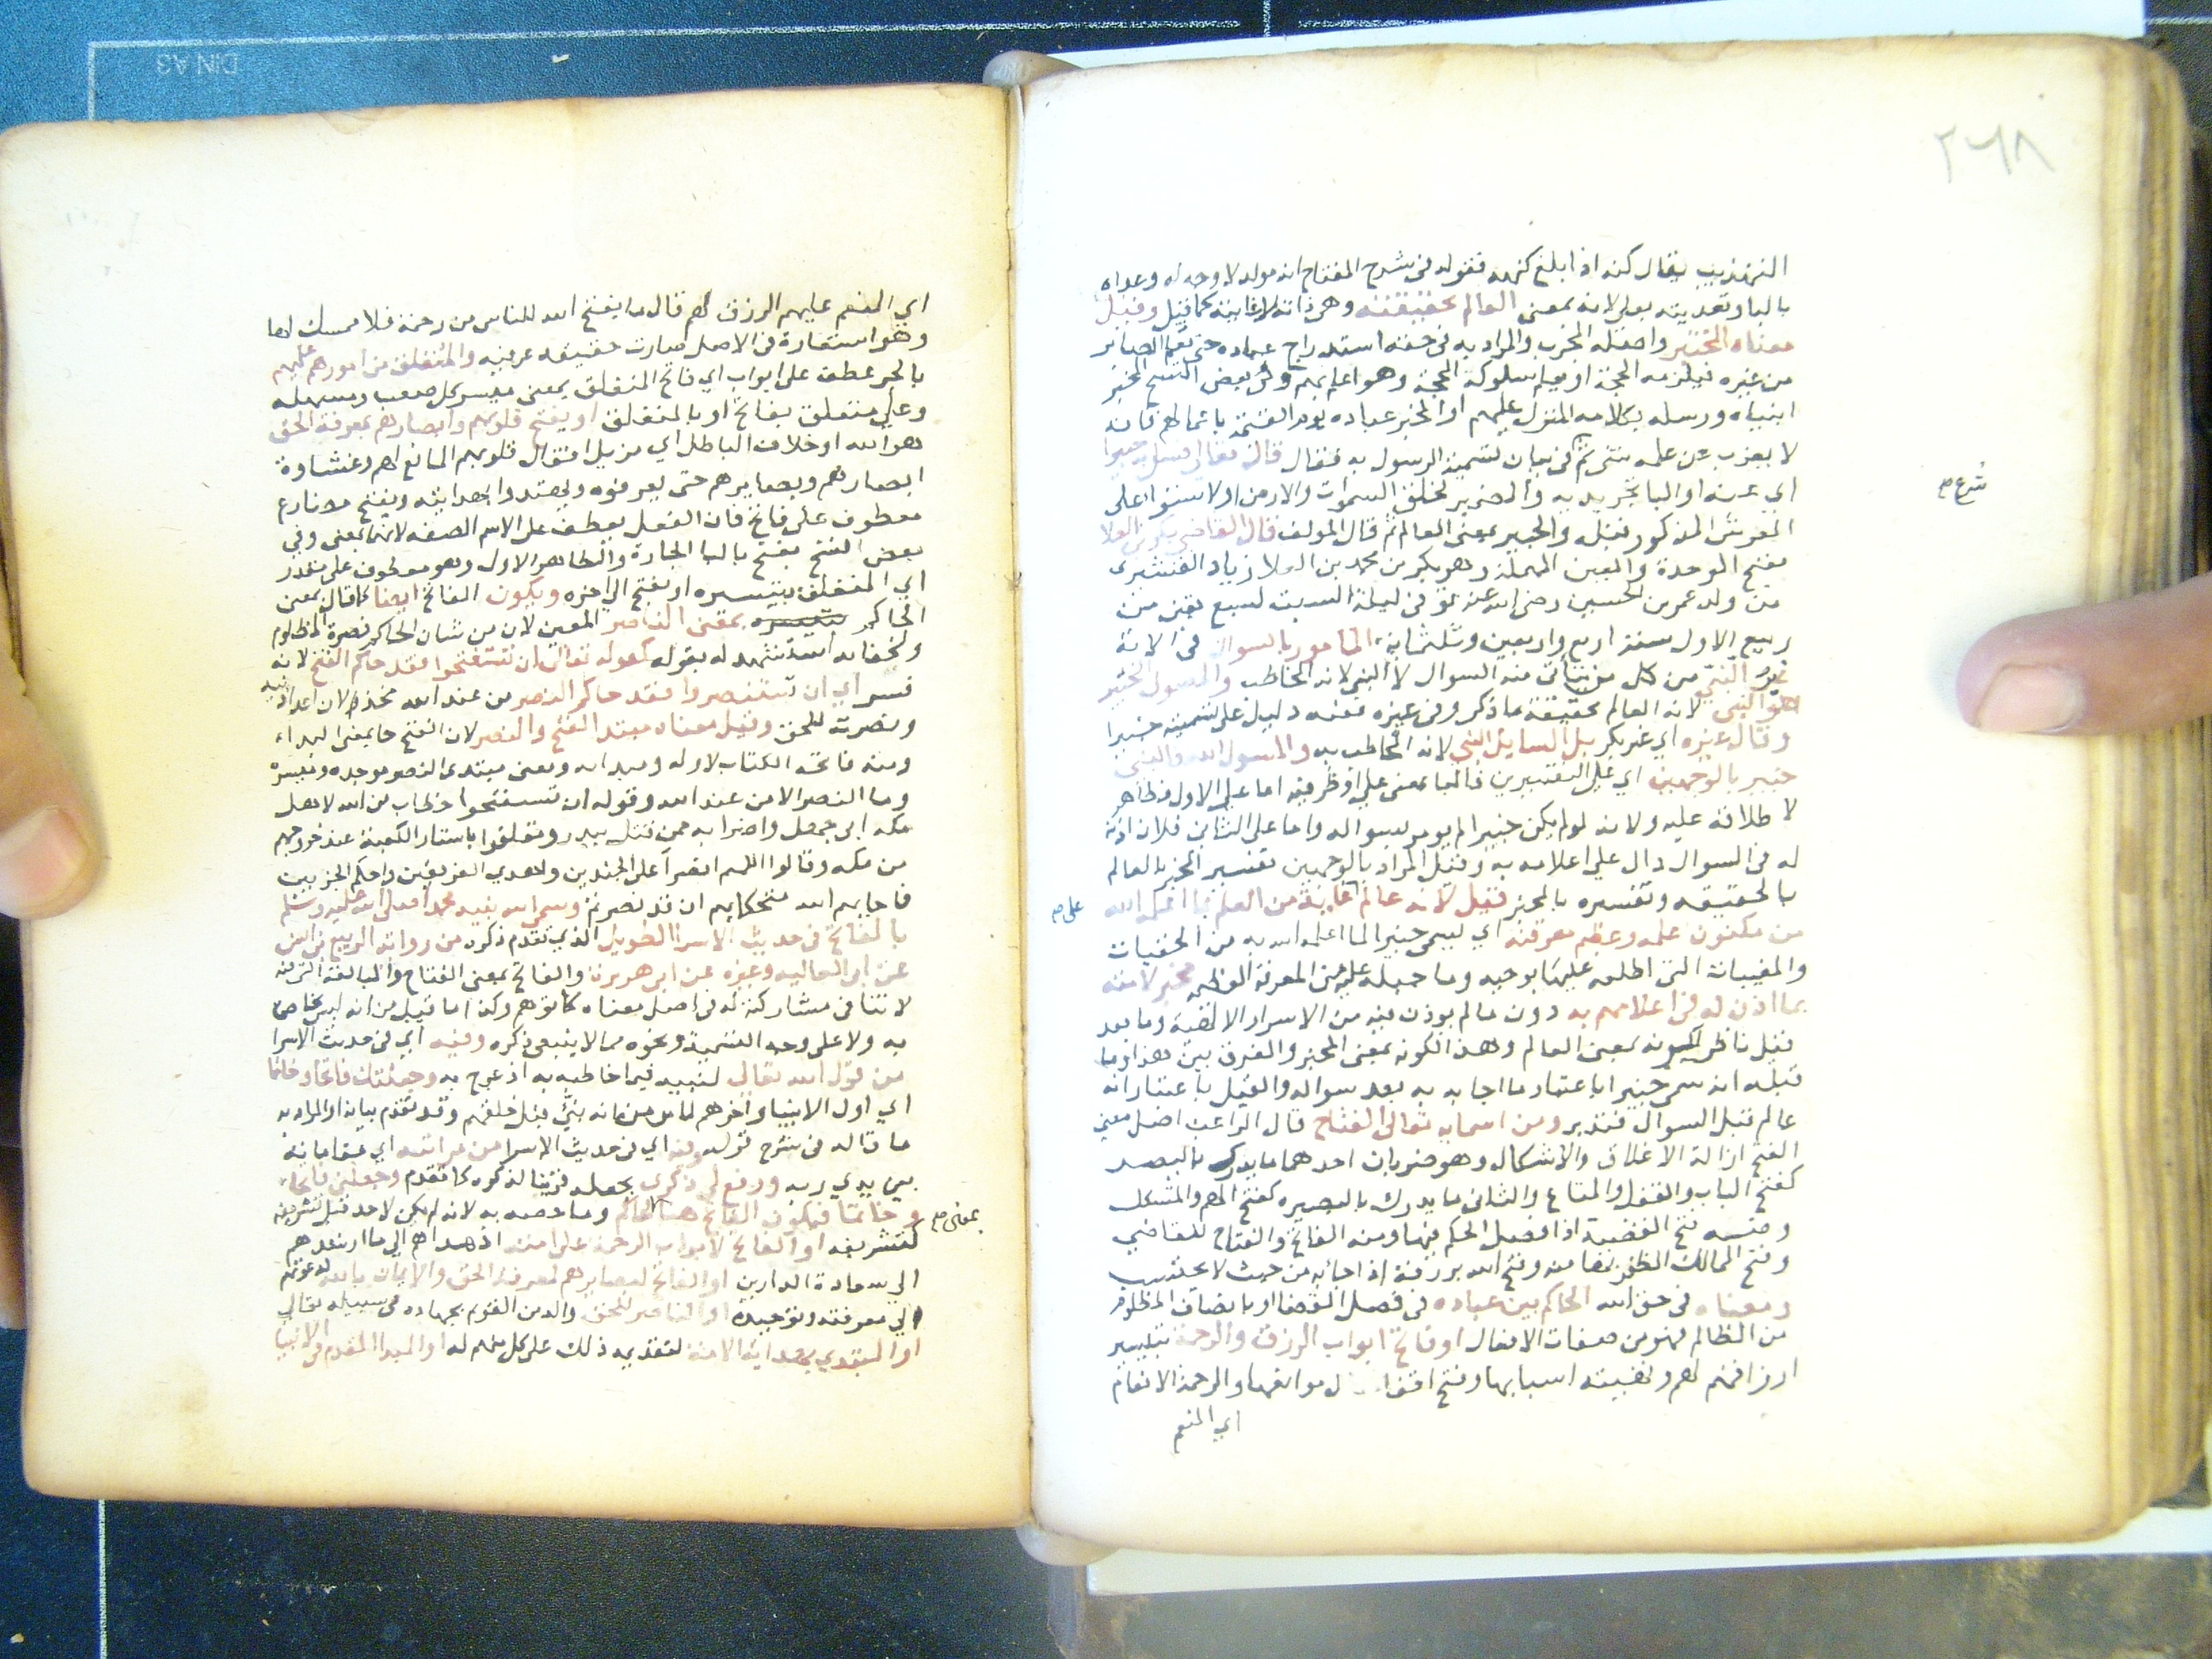 ٢٦٨
التهذيب يقال كنه اذا بلغ كنهه فقوله في شرح المفتاح انه مولد لا وجه له وعداه
بالبا وتعديته بعلى لانه بمعنى العالم بحقيقته وهي ذاته لا غايته كما قيل وقيل
معناه المختبر واصله المجرب والمراد به في حقه استدراج عباده حتى يعلم الصابر
من غيره فيلزمه الحجة او يعلم سلوكه المحجة وهو اعلم بهم وفي بعض النسخ المخبر
انبياه ورسله بكلامه المنزل عليهم او المخبر عباده يوم القيمة باعمالهم فانه
لا يعزب عن علمه شي ثم في بيان تسمية الرسول به فقال قال تعالى فسل به خبيرا
اي عنه او البا تجريديه والضمير لخلق السموات والارض او لاستواء على
العرش المذكور قبله والخبير بمعنى العالم ثم قال المولف قال القاضي بكر بن العلا
بفتح الموحدة والعين المهملة وهو بكر بن محمد بن العلا زياد القشيرى
من ولد عمر بن الحسين رضي الله عنه توفى ليلة السبت لسبع بقين من
ربيع الاول سنة اربع واربعين وثلثمايه الما مور بالسوال في الاية
غير النبي من كل من يتأتى منه السوال لا النبي لانه المخاطب والمسول الخبير
هو النبي لانه العالم بحقيقة ما ذكر وفي غيره ففيه دليل على تسميته خبيرا
وقال غيره اي غير بكر بل السايل النبي لانه المخاطب به والمسول الله والنبي
خبير بالوجهين اي على التفسيرين فالبا بمعنى على او ظرفيه اما على الاول فظاهر
لا طلاقه عليه ولانه لو لم يكن خبيرا لم يومر بسواله واما على الثاني فلان اذنه
له في السوال دال على اعلامه به وقيل المراد بالوجهين تفسير الخبير بالعالم
بالحقيقه وتفسيره بالمخبر فقيل لانه عالم غاية من العلم بما اعلمه الله
من مكنون علمه وعظيم معرفته اي يسمى خبيرا لما اعلمه الله به من الخفيات
والمغيبات التى اطلعه عليها بوحيه وما جبله عليه من المعرفة العظيمه مخبر لامته
بما اذن له في اعلامهم به دون ما لم يوذن فيه من الاسرار الالهية وما بعد
قيل ناظر لكونه بمعنى العالم وهذا لكونه بمعنى المخبر والفرق بين هذا وما
قبله انه سمى خبيرا باعتبار ما اجابه به بعد سواله والقيل باعتبار انه
عالم قبل السوال فتدبر ومن اسمايه تعالى الفتاح قال الراعب اصل معنى
الفتح ازالة الاغلاق والاشكال وهو ضربان احدهما ما يدرك بالبصر
كفتح الباب والقفل والمتاع والثاني ما يدرك بالبصيره كفتح الهم والمشكل
ومنه فتح القضية اذا فصل الحكم فيها ومنه الفاتح والفتاح للقاضي
وفتح الممالك الظفر بها منه وفتح الله برزقه اذا جاءبه من حيث لا يحتسب
ومعناه في حق الله الحاكم بين عباده في فصل القضا او بانصاف المظلوم
من الظالم فهو من صفات الافعال او فاتح ابواب الرزق والرحمة بتيسير
ارزاقهم لهم وتهيئته اسبابها وفتح اقفال موانعها والرحمة الانعام
اي المنعم
شرع ص
على ص
اي المنعم عليهم الرزق لهم قال ما يفتح الله للناس من رحمة فلا ممسك لها
وهو استعارة في الاصل صارت حقيقه عرفيه والمنغلق من امورهم عليهم
بالجر عطف على ابواب اي فاتح المنغلق بمعنى ميسر كل صعب ومسهله
وعليهم متعلق بفاتح او بالمنغلق او يفتح قلوبهم وابصارهم بمعرفة الحق
هو الله او خلاف الباطل اي مزيل اقفال قلوبهم المانع لهم وغشاوة
ابصارهم وبصايرهم حتى يعرفوه ويهتدوا بهدايته ويفتح مضارع
معطوف على فاتح فان الفعل يعطف على الاسم الصفه لانهما بمعنى وفي
بعض النسخ بفتح بالبا الجارة والظاهر الاول وهو معطوف على مقدر
اي المنغلق بتيسيره او بفتح الى اخره ويكون الفاتح ايضا كما قال بمعنى
الحاكم بمعنى الناصر المعين لان من شان الحاكم نصرة المظلوم
ولخفائه استشهد له بقوله كقوله تعالى ان تستفتحوا فقد جاكم الفتح لانه
فسر اي ان تستنصروا فقد جاكم النصر من عند الله
ونصرت للحق وقيل معناه مبتدا الفتح والنصر لان الفتح جا بمعنى ابتداء
ومنه فاتحة الكتاب لاوله ومبدائه ومعنى مبتدي النصر موجده وميسره
وما النصر الا من عند الله وقوله ان تستفتحوا خطاب من الله لاهل
مكه ابى جهل واضرابه ممن قتل ببدر وتعلقوا باستار الكعبة عند خروجهم
من مكه وقالوا اللهم انصر اعلى الجندين واهدي الفريقين واحكم الحزبين
فاجابهم الله متحكا بهم ان قد نصرتم وسمى الله نبيه محمدا صلى الله عليه وسلم
بالفاتح في حديث الاسرا الطويل الذي تقدم ذكره من رواته الربيع بن انس
عن ابى العاليه وغيره عن ابى هريرة والفاتح بمعنى الفتاح والمبالغة التى فيه
لا تنافي مشاركته له فى اصل معناه كما توهم وكذا ما قيل من انه ليس بخاص
به ولا على وجه التسمية ونحوه مما لا ينبغي ذكره وفيه اي في حديث الاسرا
من قول الله تعالى لنبيه فيما خاطبه به اذ عرج به وجعلتك فاتحا وخاتما
اي اول الانبيا وآخرهم لما مر من انه نبئ قبل خلقهم وقد تقدم بيانه او المراد به
ما قاله في شرح قوله وفيه اي في حديث الاسرا من مراتبه اي مقاماته
بين يدي ربه ورفع لي ذكرى بجعله قرينا لذكره كما تقدم وجعلني فاتحا
وخاتما فيكون الفاتح هنا الحاكم وما خصه به لانه لم يكن لاحد قبل شريعته
كتشريفه او الفاتح لابواب الرحمة على امته اذ هداهم الى ما ارشدهم
الى سعادة الدارين او الفاتح لبصايرهم لمعرفة الحق والايمان بالله لدعوتهم
الى معرفته وتوحيده او الناصر للحق والدين القويم بجهاده في سبيله تعالى
او المبتدي بهداية الامة لتقديم ذلك على كل مهم له او المبدا المقدم في الانبيا
بمعنى ص